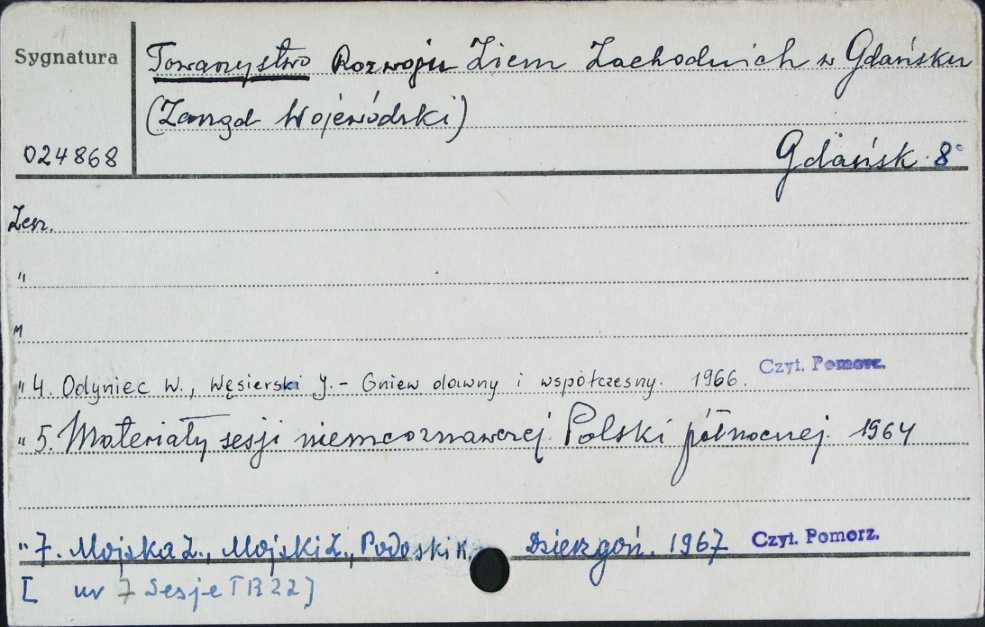 Sygnatura
Towarzystwo Rozwoju Ziem Zachodnich w Gdańsku
(Zarząd Wojewódzki)
024868
Gdańsk 8°
Zesz.
"
"
" 4. Odyniec W., Węsierski J. - Gniew dawny i współczesny. 1966. Czyt. Pomorz.
" 5. Materiały sesji niemcoznawczej Polski północnej. 1964
" 7. Mojska Z., Mojski Z., Podoski K. Dzierzgoń. 1967 Czyt. Pomorz.
[ nr 7 Sesje TRZZ]